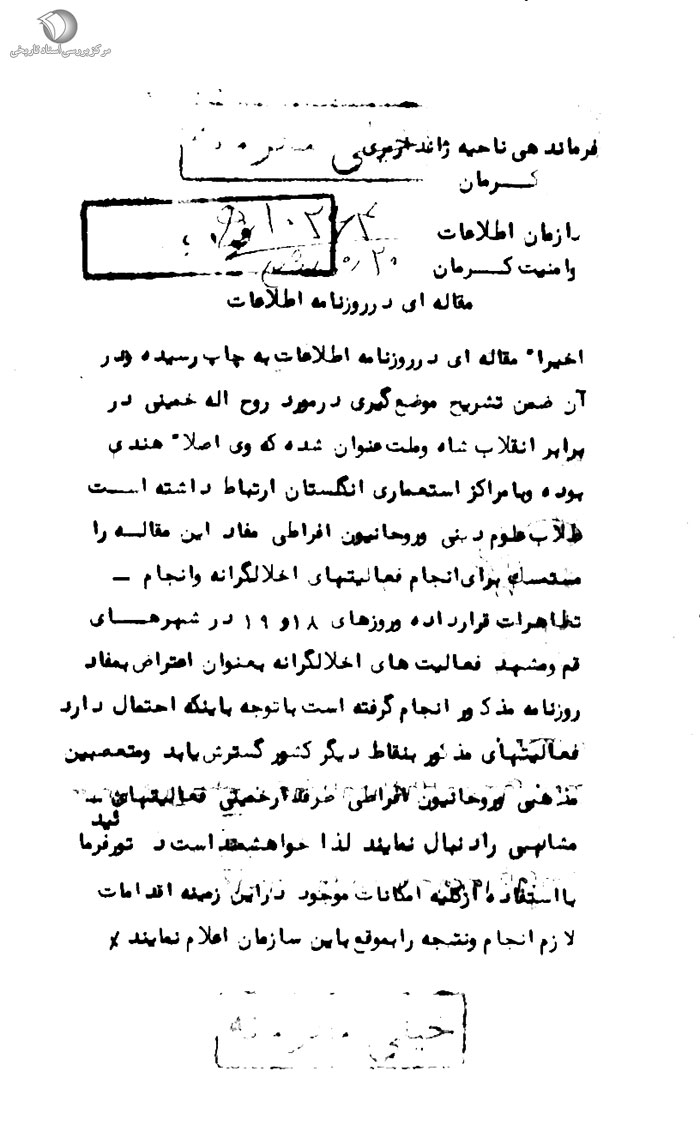 مرکز بررسی اسناد تاریخی
فرماندهی ناحیه ژاندارمری
کرمان
ازمان اطلاعات
وامنیت کرمان
مقاله ای در روزنامه اطلاعات
اخیرا" مقاله ای در روزنامه اطلاعات به چاپ رسیده ودر
آن ضمن تشریح موضع گیری در مورد روح اله خمینی در
برابر انقلاب شاه وملت عنوان شده که وی اصلا" هندی
بوده وبا مراکز استعماری انگلستان ارتباط داشته است
طلاب علوم دینی وروحانیون افراطی مفاد این مقاله را
مستمسک برای انجام فعالیتهای اخلالگرانه وانجام –
تظاهرات قرارداده وروزهای ۱۸ و ۱۹ در شهرهای
قم ومشهد فعالیت های اخلالگرانه بعنوان اعتراض بمفاد
روزنامه مذکور انجام گرفته است با توجه باینکه احتمال دارد
فعالیتهای مذکور بنقاط دیگر کشور گسترش یابد ومتعصبین
مذهبی وروحانیون افراطی طرفدار خمینی فعالیتهای –
مشابهی را دنبال نمایند لذا خواهشمند است دستور فرمائید
با استفاده از کلیه امکانات موجود در این زمینه اقدامات
لازم انجام ونتیجه را بموقع باین سازمان اعلام نمایند
خیلی محرمانه